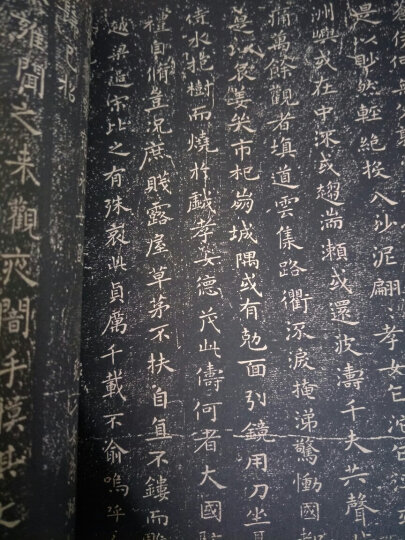 是以眇然輕絕投入沙泥翩〻孝女乍沉
洲嶼或在中流或趨湍瀨或還波濤千夫共聲
痛萬餘觀者填道雲集路衢流淚掩涕驚慟國
是以哀姜哭市杞崩城隅或有剋面引鏡用刀坐
待水抱樹而燒於戲孝女德茂此儔何者大國防
禮自脩豈況庶賤露屋草茅不扶自直不鏤而
越梁過宋比之有殊哀此貞厲千載不俞嗚乎
雍聞之來觀夜闇手摸其文